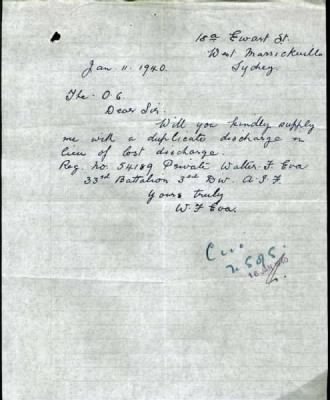 18a Ewart St.
West Marrickville
Sydney
Jan. 11. 1940.
The O C.
Dear Sir.
Will you kindly supply
me with a duplicate discharge in
lieu of lost discharge.
Reg. No. 54189 Private Walter F Eva
33rd Battalion 3rd Div. A.I.F.
Yours truly
W F Eva.